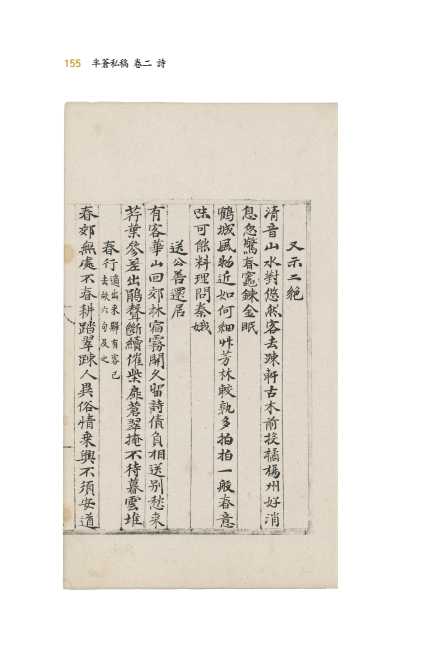 155 半蒼私稿 卷二 詩
又示二絶
清音山水對悠然客去疎軒古木前投橘楊州好消
息忽驚春竈鍊金眠
鶴城風物近如何細艸芳林賸孰多拍拍一般春意
味可能料理問秦娥
送公善還居
有客華山回郊林宿霧開久留詩債負相送別愁來
荇葉參差出鵑聲斷續催柴扉蒼翠掩不待暮雲堆
春行
適出來歸有客已
去故六句及之
春郊無處不春耕踏翠踈人異俗情乘興不須安道